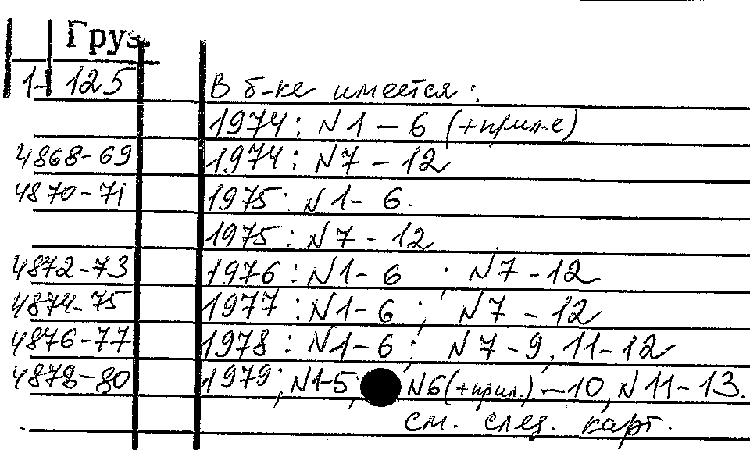 Груз.
1-125 В б-ке имеется:
1974: N1-6 (+прил-е)
4868-69 1974: N7-12
4870-71 1975: N1-6.
1975: N7-12
4872-73 1976: N1-6; N7-12
4874-75 1977: N1-6; N7-12
4876-77 1978: N1-6; N7-9, 11-12
4878-80 1979; N1-5; N6(+прил.)-10, N11-13.
см. след. карт.